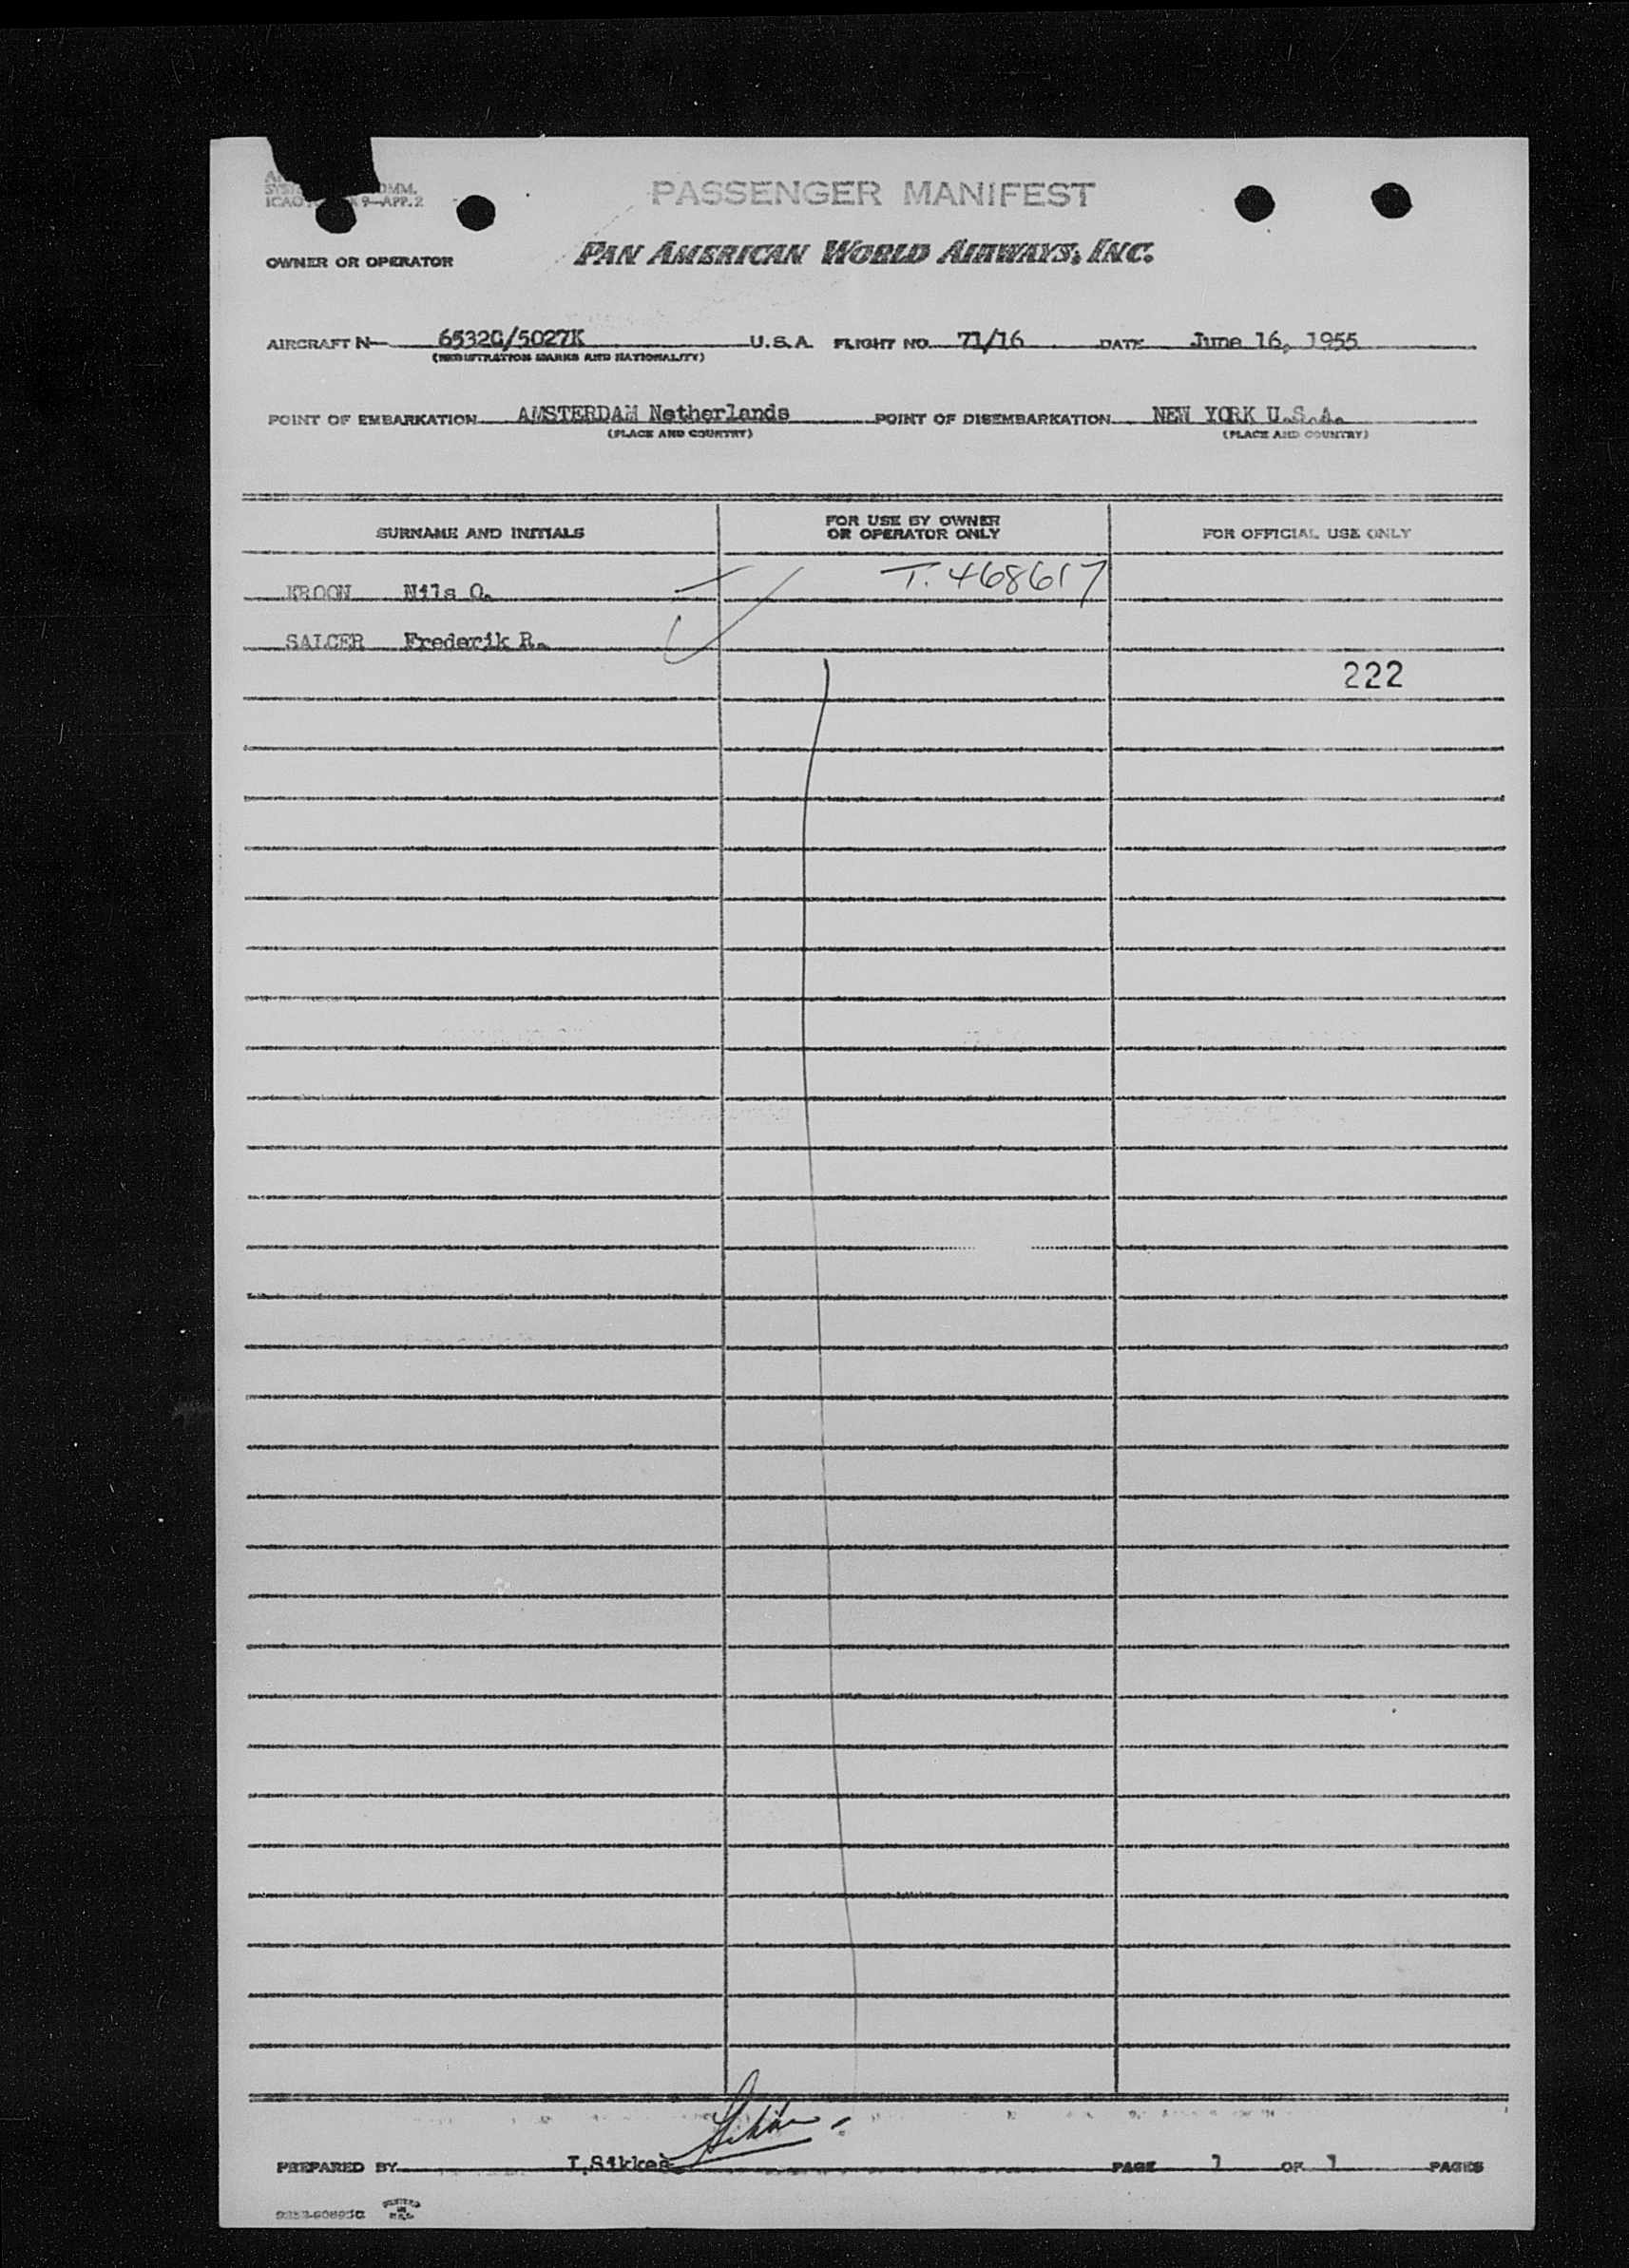 PASSENGER MANIFEST
OMM.
ICAO 9—APP. 2
OWNER OR OPERATOR PAN AMERICAN WORLD AIRWAYS, INC.
AIRCRAFT N— 6532C/5027K U.S.A. FLIGHT NO. 71/16 DATE June 16, 1955
(REGISTRATION MARKS AND NATIONALITY)
POINT OF EMBARKATION AMSTERDAM Netherlands POINT OF DISEMBARKATION NEW YORK U.S.A.
(PLACE AND COUNTRY) (PLACE AND COUNTRY)
SURNAME AND INITIALS FOR USE BY OWNER OR OPERATOR ONLY FOR OFFICIAL USE ONLY
T. 468617
KROON Nils O.
SALCER Frederik R.
222
PREPARED BY I.Sikkes PAGE 1 OF 1 PAGES
PRINTED IN U.S.A.